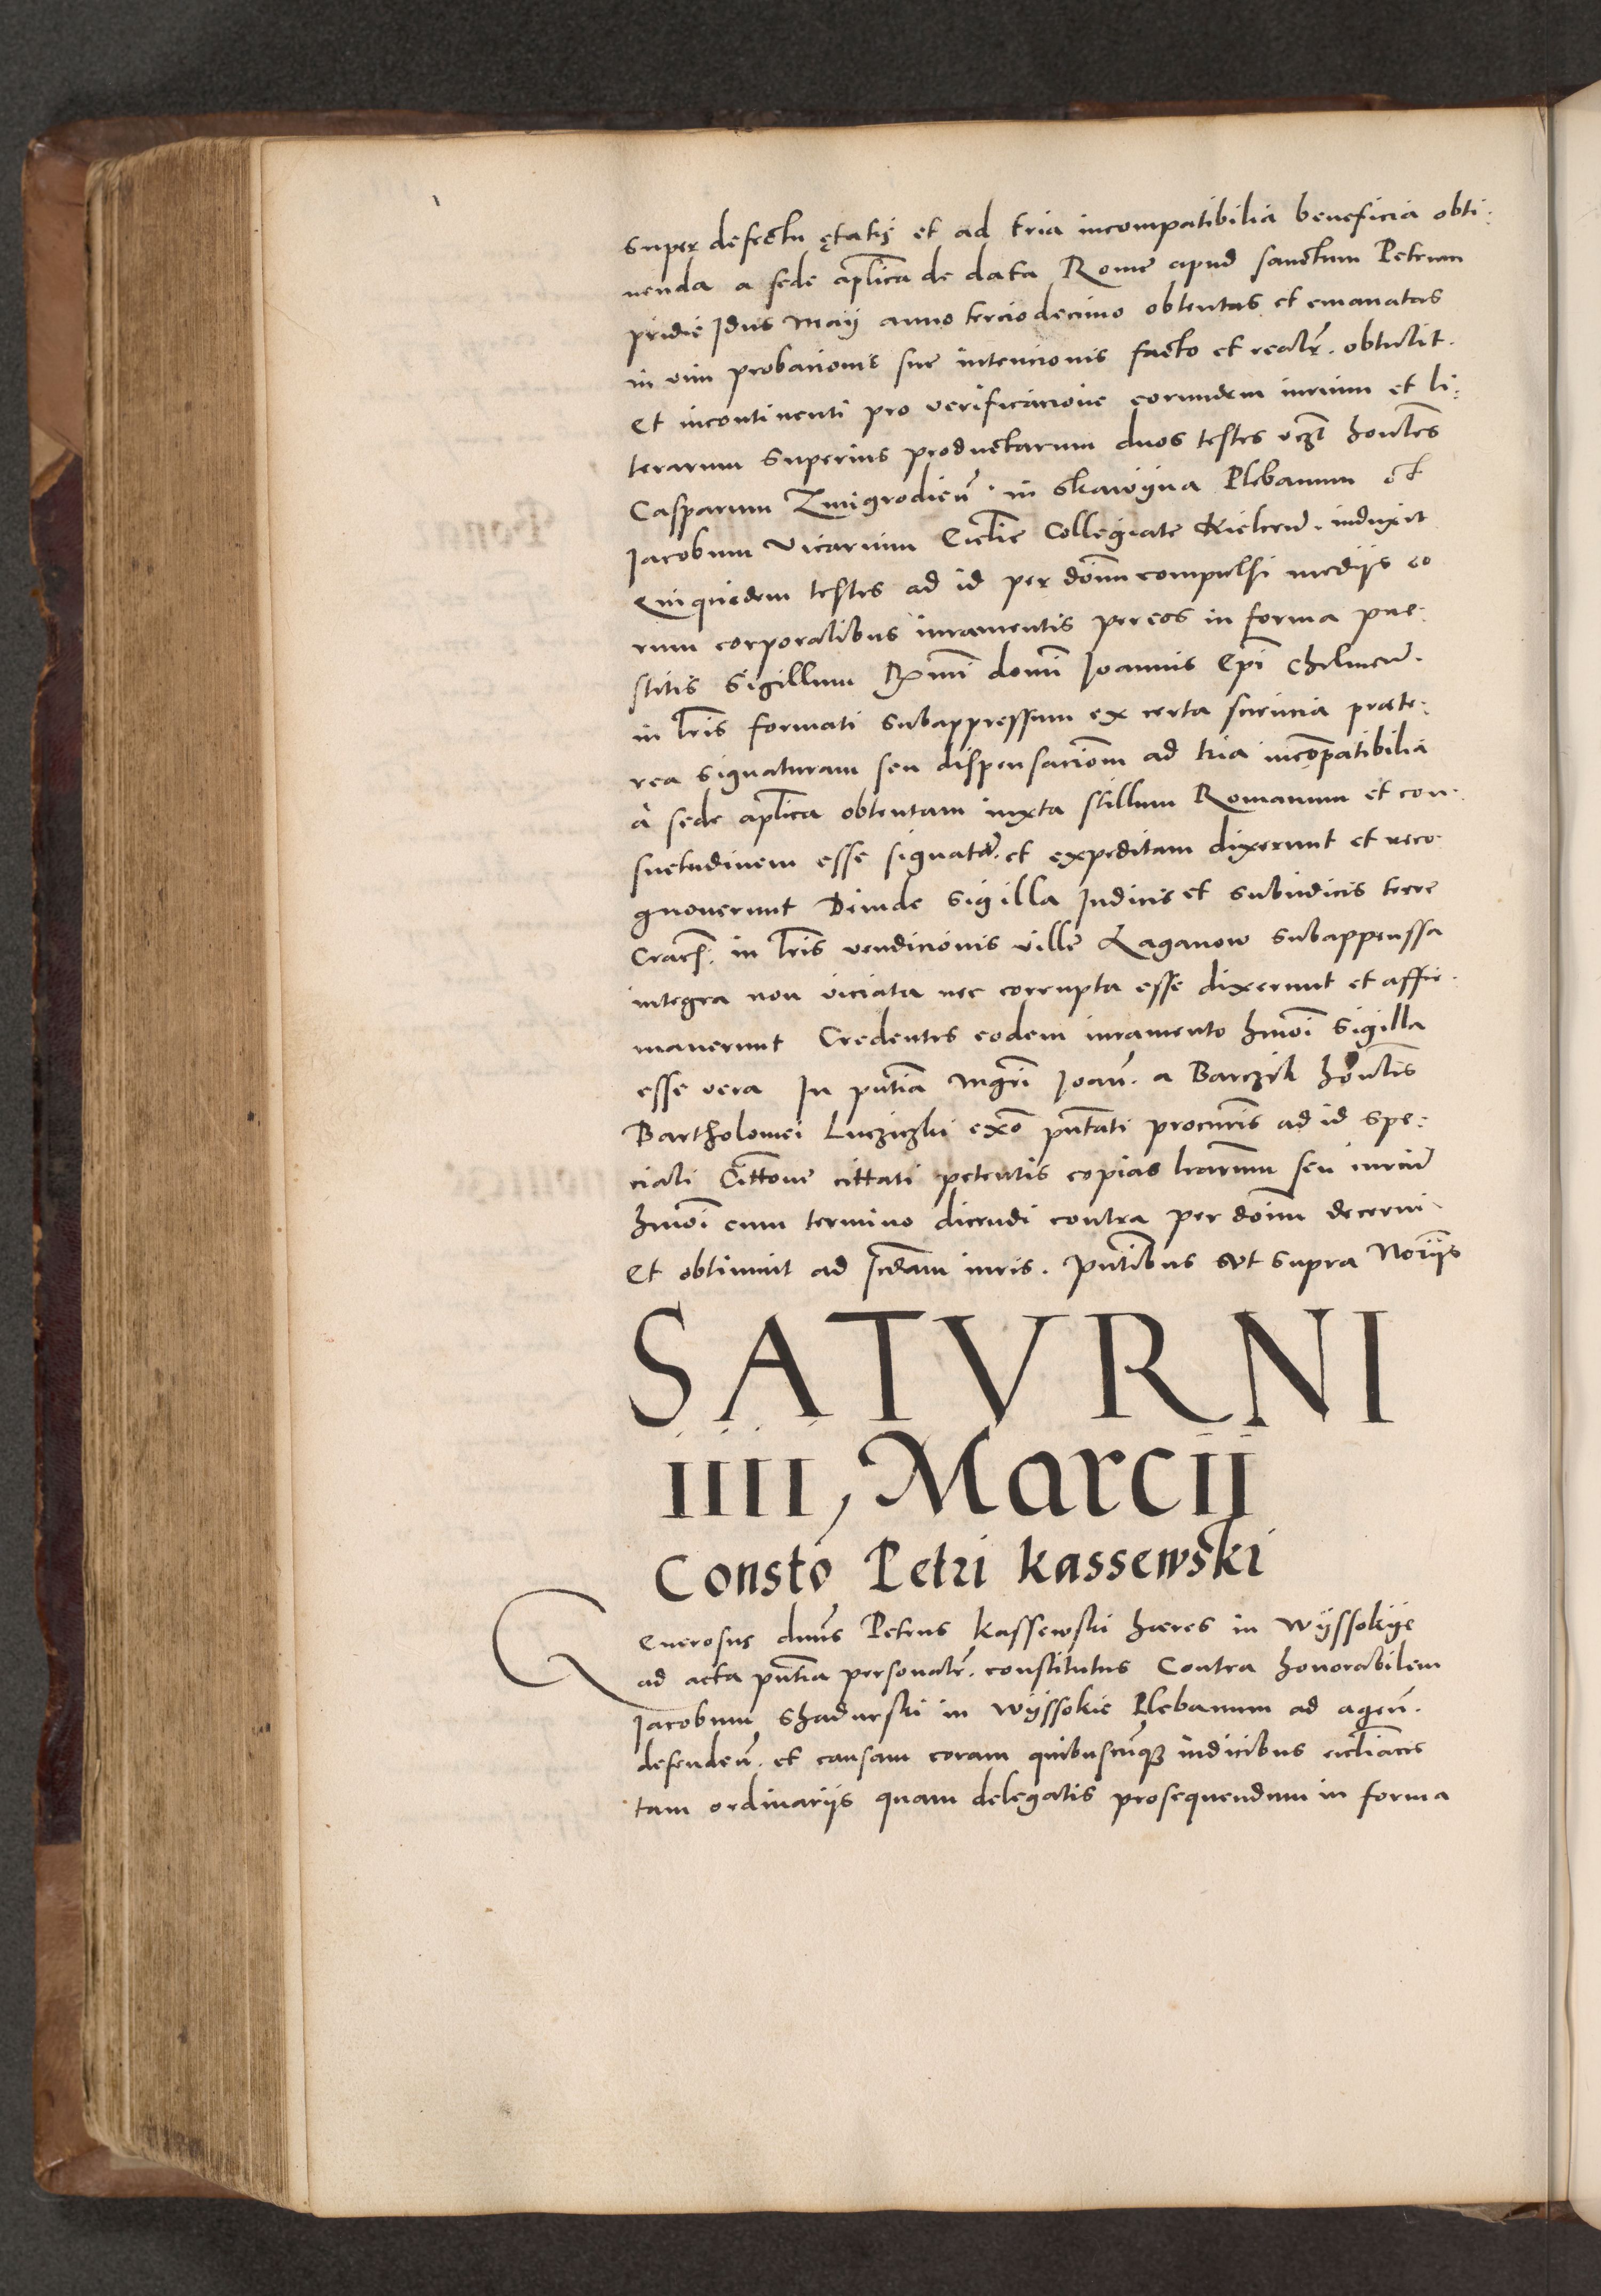 super defectu ętatis et ad tria incompatibilia beneficia obti:
nenda a sede aplica de data Rome apud sanctum Petrum
pridie Idus Maij anno terciodecimo obtentas et emanatas
in vim probacionis sue intencionis facto et realr. obtulit.
Et incontinenti pro verificacione eorumdem iurium et li:
terarum superius productarum duos testes vczt honles
Casparum Zmigrodien. in Skawyna Plebanum et
Jacobum Vicarium Ecclie Collegiate Kielcen. induxit
Quiquidem testes ad id per donu compulsi medijs eo
rum corporalibus iuramentis per eos in forma pre:
stitis Sigillum Rmi domi Joannis Epi Chelmen.
in lris formati subappressum ex certa sciencia prete:
rea signaturam seu dispensaciom ad tria incompatibilia
a sede aplica obtentam iuxta stillum Romanum et con:
suetudinem esse signatam et expeditam dixerunt et reco
gnoverunt Deinde sigilla Judicis et subiudicis terre
Crac. in lris vendicionis ville Laganow subappenssa
integra non viciata nec corrupta esse dixerunt et affir:
maverunt Credentes eodem iuramento hmoi sigilla
esse vera In pntia mgri Joan. a Barczik honlis
Bartholomei Luczyczki exo pntati procuris ad id spe:
ciali Cittone cittati petentis copias lrarum seu iurium
hmoi cum termino dicendi contra per donu decerni
Et obtinuit ad scdam iuris. pntibus vt supra Norijs
SATVRNI
IIII, Marcii
Consto Petri Kassewski
Generosus dnus Petrus Kassewski hæres in Wyssokye
ad acta pntia personalr. constitutus Contra honorabilem
Jacobum Shadurski in Wyssokie Plebanum ad agen.
defenden. et causam coram quibuscunq iudicibus ecliacis
tam ordinarijs quam delegatis prosequendum in forma